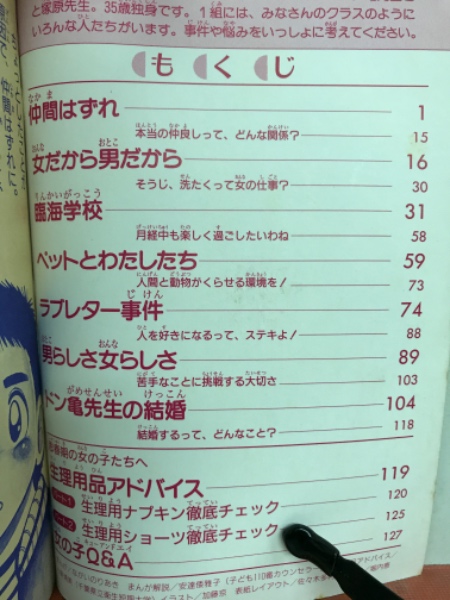 と塚原先生。35歳独身です。1組には、みなさんのクラスのように
いろんな人たちがいます。事件や悩みをいっしょに考えてください。
もくじ
仲間はずれ 1
本当の仲良しって、どんな関係? 15
女だから男だから 16
そうじ、洗たくって女の仕事? 30
臨海学校 31
月経中も楽しく過ごしたいわね 58
ペットとわたしたち 59
人間と動物がくらせる環境を! 73
ラブレター事件 74
人を好きになるって、ステキよ! 88
男らしさ女らしさ 89
苦手なことに挑戦する大切さ 103
ドン亀先生の結婚 104
結婚するって、どんなこと? 118
思春期の女の子たちへ
生理用品アドバイス 119
生理用ナプキン徹底チェック 120
生理用ショーツ徹底チェック 125
女の子Q&A 127
まんが解説/安達倭雅子(子ども110番カウンセラー
イラスト/加藤 表紙レイアウト/佐々木